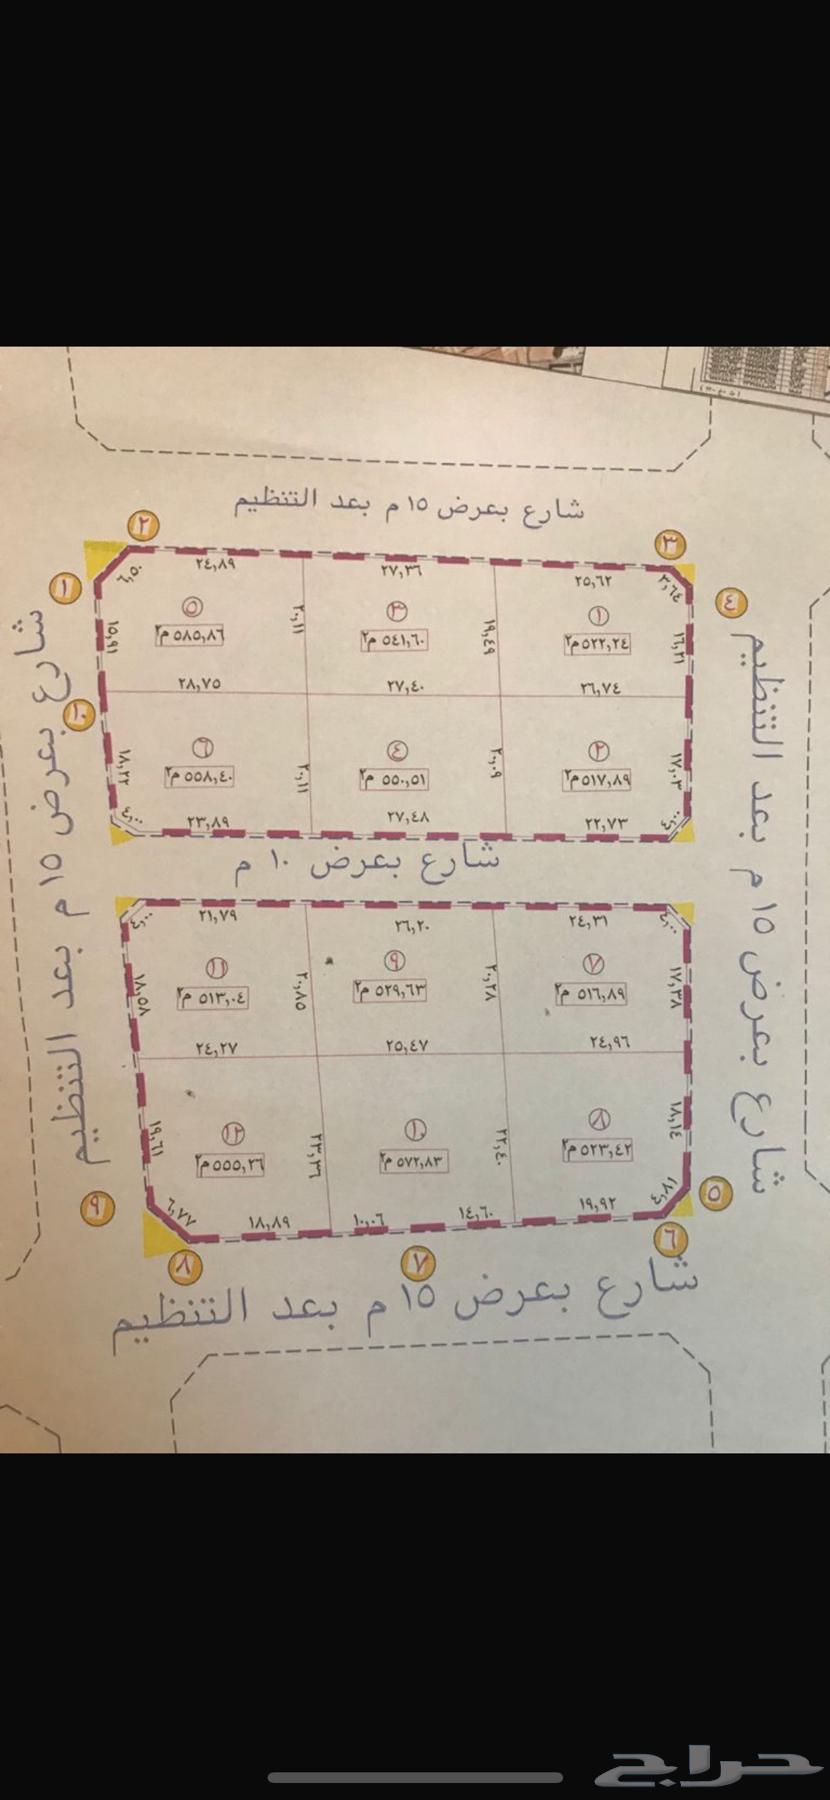 شارع بعرض ١٥ م بعد التنظيم
٢
٣
١
٤
٦,٥٠
٢٤,٨٩
٢٧,٣٦
٢٥,٦٢
٢,٦٤
١٥,٩١
٥
٥٨٥,٨٦ م٢
٢٠,١١
٣
٥٤١,٦٠ م٢
١٩,٤٩
١
٥٢٢,٢٤ م٢
١٦,٢١
٢٨,٧٥
٢٧,٤٠
٢٦,٧٤
١٠
١٨,٢٢
٦
٥٥٨,٤٠ م٢
٢٠,١١
٤
٥٥٠,٥١ م٢
٢٠,٠٩
٢
٥١٧,٨٩ م٢
١٧,٠٣
٤,٠٠
٢٣,٨٩
٢٧,٤٨
٢٢,٧٣
٤,٠٠
شارع بعرض ١٠ م
شارع بعرض ١٥ م بعد التنظيم
شارع بعرض ١٥ م بعد التنظيم
٤,٠٠
٢١,٧٩
٢٦,٢٠
٢٤,٣١
٤,٠٠
١٨,٥٨
١١
٥١٣,٠٤ م٢
٢٠,٨٥
٩
٥٢٩,٦٣ م٢
٢٠,٢٨
٧
٥١٦,٨٩ م٢
١٧,٣٨
٢٤,٢٧
٢٥,٤٧
٢٤,٩٦
١٩,٦١
١٢
٥٥٥,٢٦ م٢
٢٣,٣٦
١٠
٥٧٢,٨٣ م٢
٢٢,٤٠
٨
٥٢٣,٤٢ م٢
١٨,١٤
٦,٧٧
١٨,٨٩
١٠,٠٦
١٤,٦٠
١٩,٩٢
٩
٥
٨
٧
٦
شارع بعرض ١٥ م بعد التنظيم
حراج